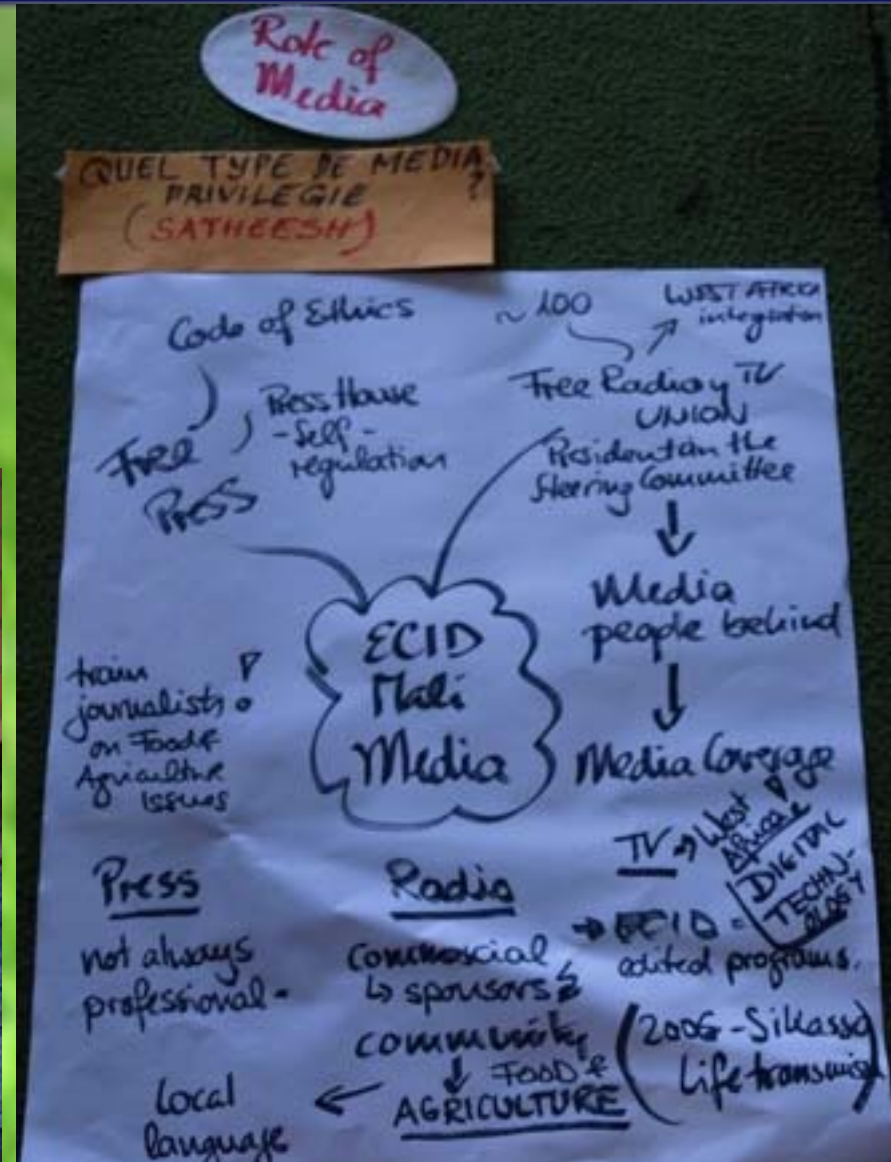 Role of
Media
QUEL TYPE DE MEDIA
PRIVILEGIE ?
(SATHEESH)
Code of Ethics
Free
Press
Press House
- Self -
regulation
~ 100
WEST AFRICA
integration
Free Radio y TV
UNION
President on the
Steering Committee
Media
people behind
Media Coverage
ECID
Mali
Media
train
journalists !
on Food &
Agriculture
issues
Press
not always
professional -
Radio
commercial
↳ sponsors
community
↓ FOOD &
AGRICULTURE
Local
language
TV → West
Africa
DIGITAL
TECHN-
OLOGY
→ ECID -
edited programs.
(2006 - Sikasso
Life transmis